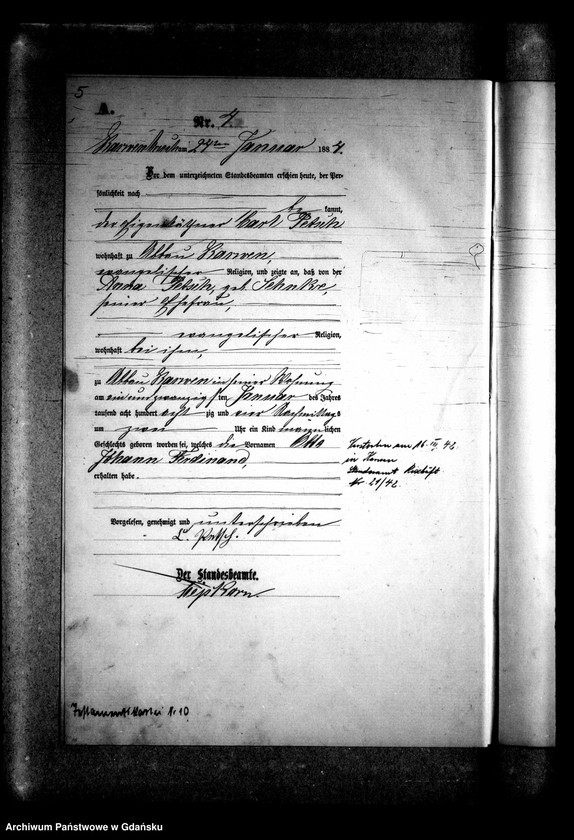 5
A.
Nr. 4.
am 24ten Januar 1884.
Vor dem unterzeichneten Standesbeamten erschien heute, der Per-
sönlichkeit nach
be kannt,
der Eigenkäthner Carl Petsch
wohnhaft zu Abbau Karwen,
evangelischer Religion, und zeigte an, daß von der
Anna Petsch, geb.
seiner Ehefrau,
evangelischer Religion,
wohnhaft bei ihm,
zu Abbau Karwen in seiner Wohnung
am ein und zwanzigsten Januar des Jahres
tausend acht hundert achtzig und vier Nachmittags
um zwei Uhr ein Kind männlichen
Geschlechts geboren worden sei, welches die Vornamen Otto
Johann Ferdinand,
erhalten habe.
Vorgelesen, genehmigt und unterschrieben
C. Petsch.
Der Standesbeamte.
Verstorben am 16. 42
in Karwen
Standesamt
Nr 21/42.
10
Archiwum Państwowe w Gdańsku